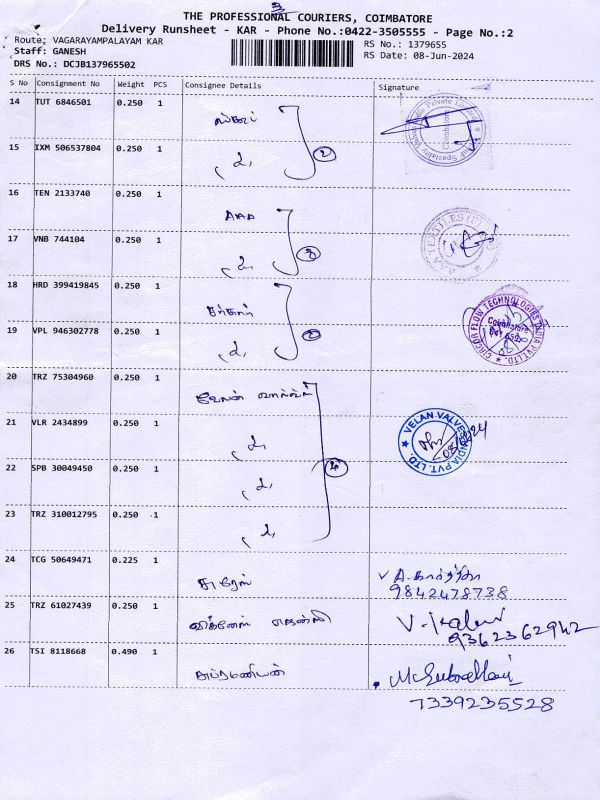 3
THE PROFESSIONAL COURIERS, COIMBATORE
Delivery Runsheet - KAR - Phone No.:0422-3505555 - Page No.:2
Route: VAGARAYAMPALAYAM KAR
RS No.: 1379655
Staff: GANESH
RS Date: 08-Jun-2024
DRS No.: DCJB137965502
S No Consignment No Weight PCS Consignee Details Signature
14 TUT 6846501 0.250 1
15 IXM 506537804 0.250 1
16 TEN 2133740 0.250 1 AAA
AAA TEXTILES (P)
17 VNB 744104 0.250 1
18 HRD 399419845 0.250 1
CIRCOR FLOW TECHNOLOGIES INDIA PVT LTD.
Coimbatore
19 VPL 946302778 0.250 1
20 TRZ 75304960 0.250 1 வேலன் வால்வ்ஸ்
21 VLR 2434899 0.250 1
VELAN VALVES INDIA PVT. LTD.
22 SPB 30049450 0.250 1
4
23 TRZ 310012795 0.250 1
24 TCG 50649471 0.225 1 சுரேஸ்
9842478738
25 TRZ 61027439 0.250 1
9362362942
26 TSI 8118668 0.490 1 சுப்ரமணியன்
7339235528